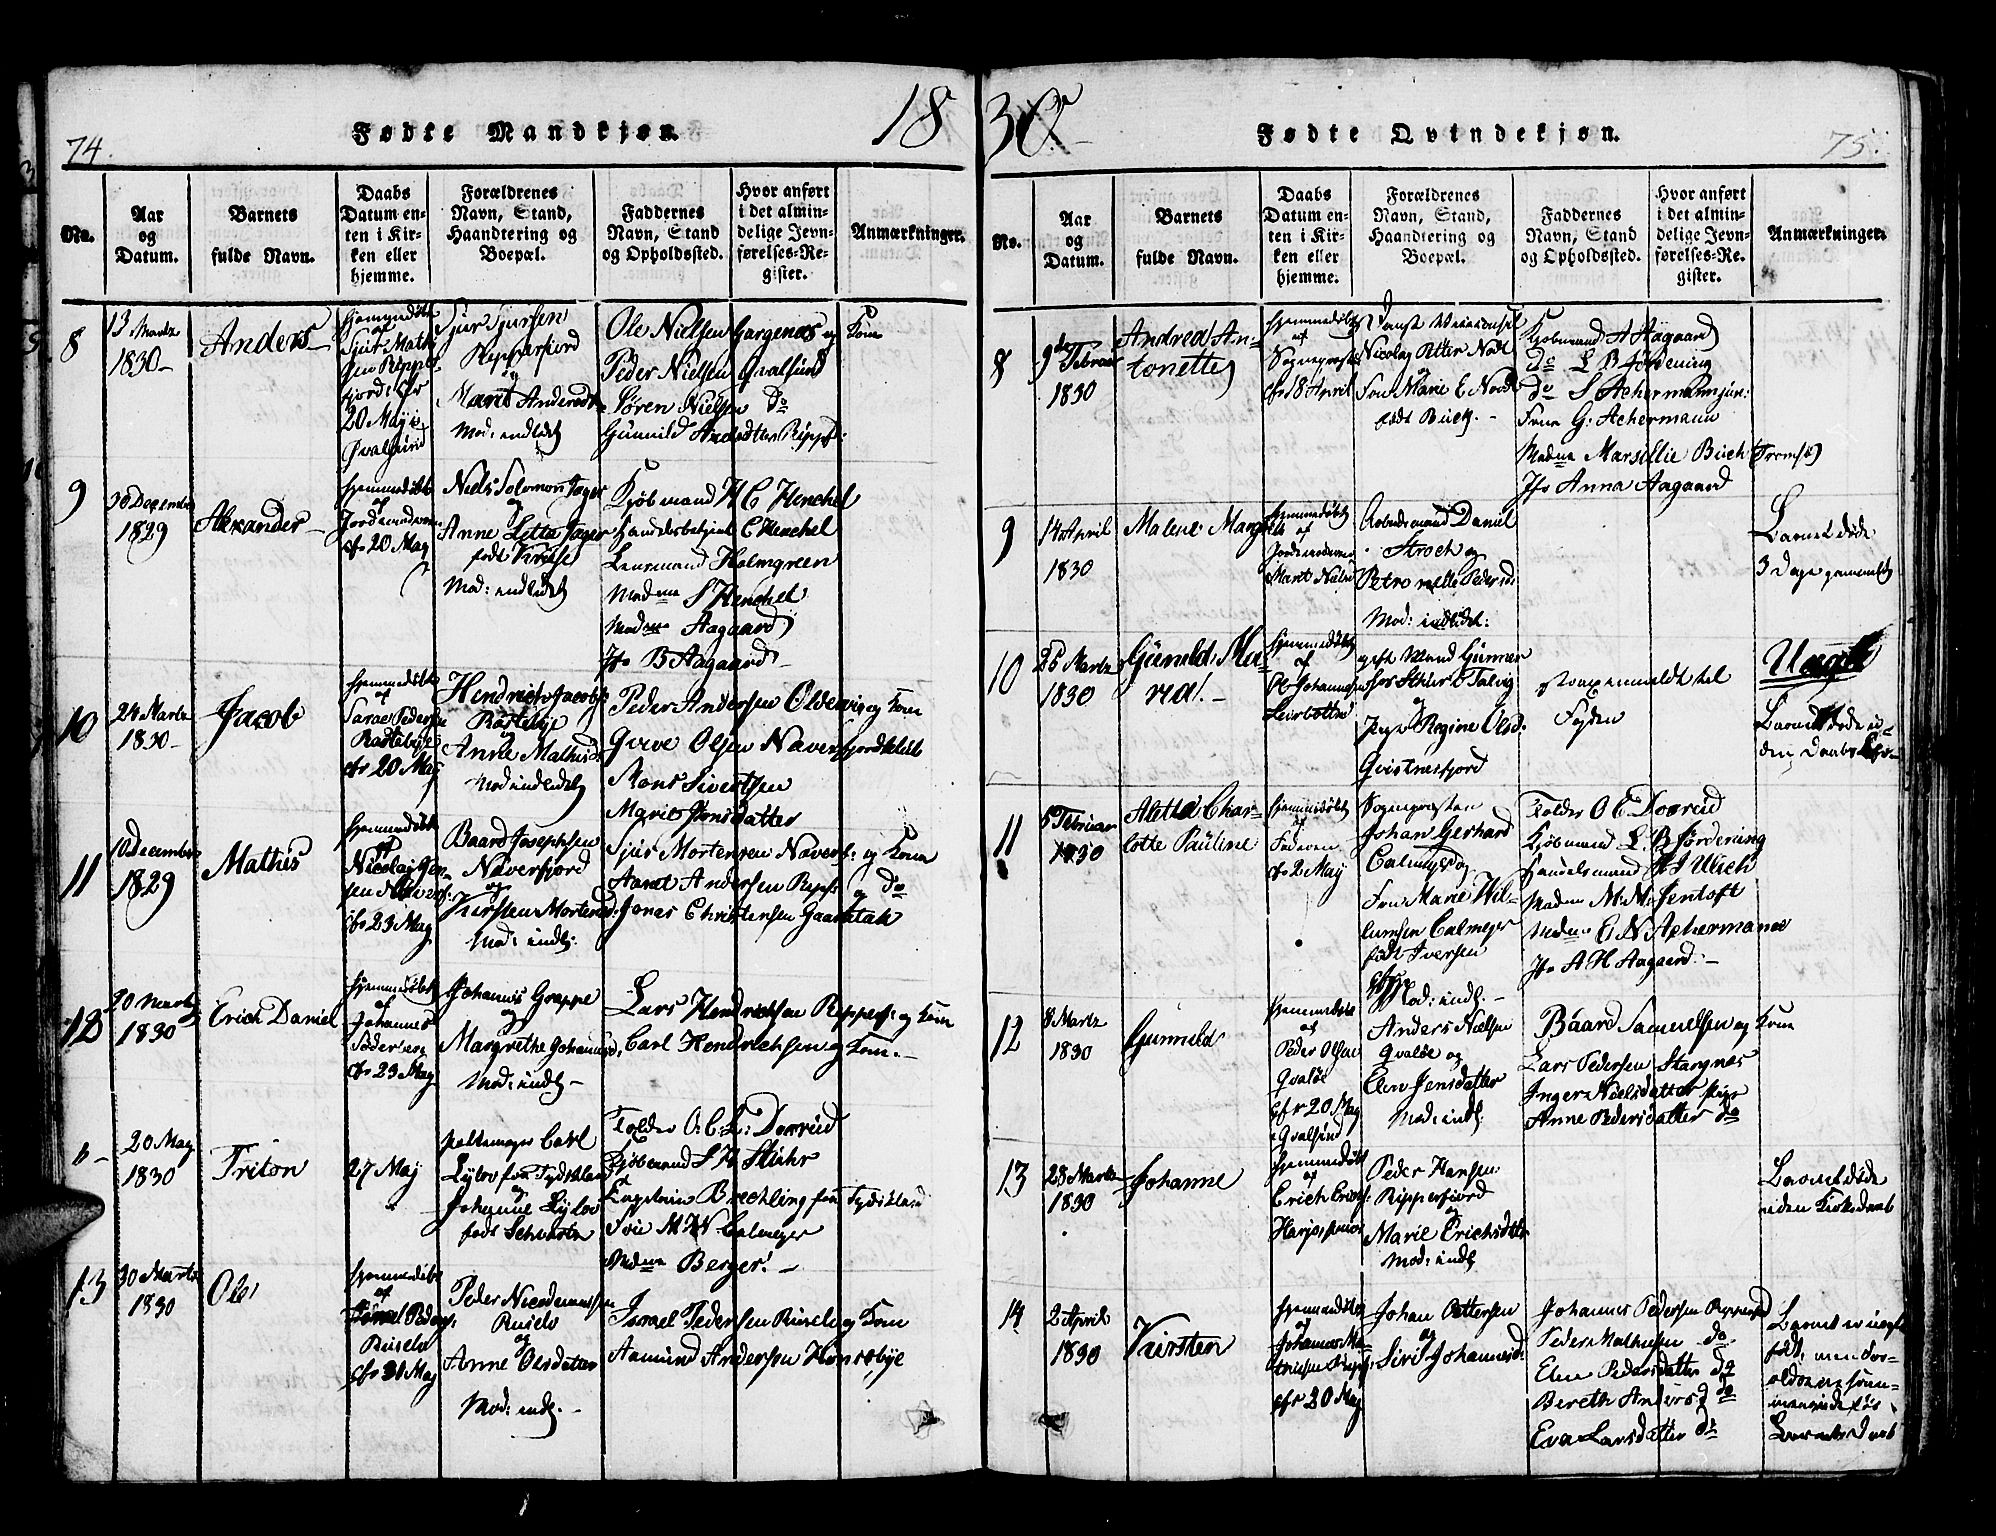 74.
Fødte Mandkjøn.
18
No.
Aar
og
Datum.
Barnets
fulde Navn.
Daabs
Datum en-
ten i Kir-
ken eller
hjemme.
Forældrenes
Navn, Stand,
Haandtering og
Boepæl.
Faddernes
Navn, Stand
og Opholdssted.
Hvor anført
i det almin-
delige Jevn-
førelses-Re-
gister.
Anmærkninger.
8
13 Martz
1830
Anders
hjemmedøbt
af
20 Maji
Qvalsund
Sjur Sjursen
Ripperfjord
og
Marit Andersdtr
Mod: indledet
Ole Nielsen Gargenæs og Kone
Peder Nielsen Qvalsund
Søren Nielsen do
Gunnild Andsdtter Rippf:
9
30 December
1829
Alexander
hjemmedøbt
af
Jordemoderen
cfr 20 Maij
Niels Solomon Jager
og
Anne Letta Jager
født Kruse
Mod: indledet
Kjøbmand H C Henchel
Handelsbetjent C Henchel
Lensmand Holmgreen
Madme S Henchel
Madme Aagaard
Jfr B Aagaard
10
24 Martz
1830
Jacob
hjemmedøbt
af
Sarae Pedersen
Rastebye
cfr 20 Maij
Hendrich Jacobs
Rastebye
og
Anne Mathisd:
Mod indledet
Peder Andersen Oldervig og Kone
Qvive Olsen Naverfjordkleub
Mons Sivertsen
Marit Jonsdatter
11
10 December
1829
Mathis
hjemmedøbt
af
Nicolai Jen-
sen Naverf:
cfr 23 Maij
Baard Josephsen
Naverfjord
og
Kirsten Mortensd:
Mod: indl:
Sjur Mortensen Naverf: og Kone
Aanet Andersen Ripf: og do
Jonas Christensen Gaashtak
12
20 Martz
1830
Erich Daniel
hjemmedøbt
af
Johannes
Søderberg
cfr 23 Maij
Johannes Greppe
og
Margrethe Johannesd:
Mod: indl:
Lars Hendrichsen Ripperf: og Kone
Carl Hendrichsen og Kone.
20 Maij
1830
Triton
27 Maij
Carl
Lylov fra Tydskland
og
Johanne Lylov
født Schwartz
Tolder O: C. L: Doorud
Kjøbmand S H Stuhr
Capitain Brechling fra Tydskland
Frue M W Calmeyer
Madme Berger.
13
30 Martz
1830
Ole
hjemmedøbt
af
Israel Peders:
Ruselv
cfr 31 Maij
Peder Nicodemussen
Ruselv
og
Anne Olsdatter
Mod: indl:
Israel Pedersen Ruselv og Kone
Aamund Andersen Honsebye
30
Fødte Qvindekjøn.
75.
No.
Aar
og
Datum.
Barnets
fulde Navn.
Daabs
Datum en-
ten i Kir-
ken eller
hjemme.
Forældrenes
Navn, Stand,
Haandtering og
Boepæl.
Faddernes
Navn, Stand
og Opholdssted.
Hvor anført
i det almin-
delige Jevn-
førelses-Re-
gister.
Anmærkninger.
8
9de Februar
1830
Andrea An-
tonette
hjemmedøbt
af
Sognepræsten
cfr 18 April
Nicolay Petter Nodt
og
Frue Marie E Nodt
født Buck.
Kjøbmand A Aagaard
do L B Førdening
do S Achermann jun:
Frue G: Achermann
Madme Marsellie Buch Tromsø
Jfr Anna Aagaard
9
14 April
1830
Malene Margrete
hjemmedøbt
af
Jordemoderen
Marit Nielsd
Arbeidsmand Daniel
Stroch og
Petronelle Pedersd:
Mod: indledet:
Barnet døde
3 Dage gammelt
10
25 Martz
1830
Gunnild Ma-
rea.
hjemmedøbt
af
Ole Johannesen
Leirbotten
gift Mand Gunner
i Talvig
og
Pige Regine Olsd:
Qvistnesfjord
meldt til
Fogden
Uægte
Barnet døde u-
den Daabsbekr
11
5 Februar
1830
Aletta Char-
lotte Pauline
hjemmedøbt
af
Faderen
cfr 2 Maij
Sognepræsten
Johan Gerhard
Calmeyer og
Frue Marie Wil-
lumsen Calmeyer
født Iversen
Mod: indl:
Tolder O C Doorud
Kjøbmand L B Førdening
Handelsmand H J Ulich
Madme M. M: Jentoft
Madme E N Achermann
Jfr A H Aagaard.
12
8 Martz
1830
Gunnild
hjemmedøbt
af
Peder Olsen
Qvaløe
cfr 20 Maij
i Qvalsund
Anders Nielsen
Qvaløe og
Elen Jensdatter
Mod: indl:
Baard Samuelsen og Kone
Lars Pedersen Stangnes
Inger Nielsdatter Pige
Anne Pedersdatter do
13
28 Martz
1830
Johanne
hjemmedøbt
af
Erich Erichs:
Peder Hansen
Ripperfiord
og
Marie Erichsdtr
Mod: indl
Barnet døde
uden Kirkedaab
14
2 April
1830
Kirsten
hjemmedøbt
af
Johannes Ma-
thiesen Rippf:
cfr 20 Maij
Johan Pettersen
og
Siri Johannesd:
Johannes Pedersen Ripperfd
Peder Mathiesen do
Elen Pedersdatter do
Bereth Andersd do
Eva Larsdatter do
Barnet er uægte
født, men For-
ældrene
før
Barnets Daab